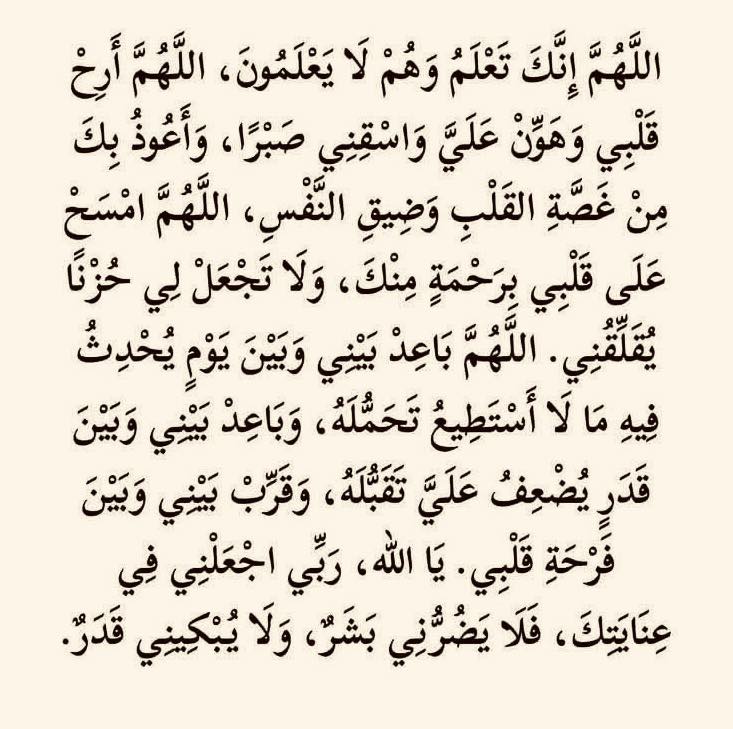 اللَّهُمَّ إِنَّكَ تَعْلَمُ وَهُمْ لَا يَعْلَمُونَ، اللَّهُمَّ أَرِحْ
قَلْبِي وَهَوِّنْ عَلَيَّ وَاسْقِنِي صَبْرًا، وَأَعُوذُ بِكَ
مِنْ غَصَّةِ القَلْبِ وَضِيقِ النَّفْسِ، اللَّهُمَّ امْسَحْ
عَلَى قَلْبِي بِرَحْمَةٍ مِنْكَ، وَلَا تَجْعَلْ لِي حُزْنًا
يُقَلِّقُنِي. اللَّهُمَّ بَاعِدْ بَيْنِي وَبَيْنَ يَوْمٍ يُحْدِثُ
فِيهِ مَا لَا أَسْتَطِيعُ تَحَمُّلَهُ، وَبَاعِدْ بَيْنِي وَبَيْنَ
قَدَرٍ يُضْعِفُ عَلَيَّ تَقَبُّلَهُ، وَقَرِّبْ بَيْنِي وَبَيْنَ
فَرْحَةِ قَلْبِي. يَا الله، رَبِّي اجْعَلْنِي فِي
عِنَايَتِكَ، فَلَا يَضُرُّنِي بَشَرٌ، وَلَا يُبْكِينِي قَدَرٌ.